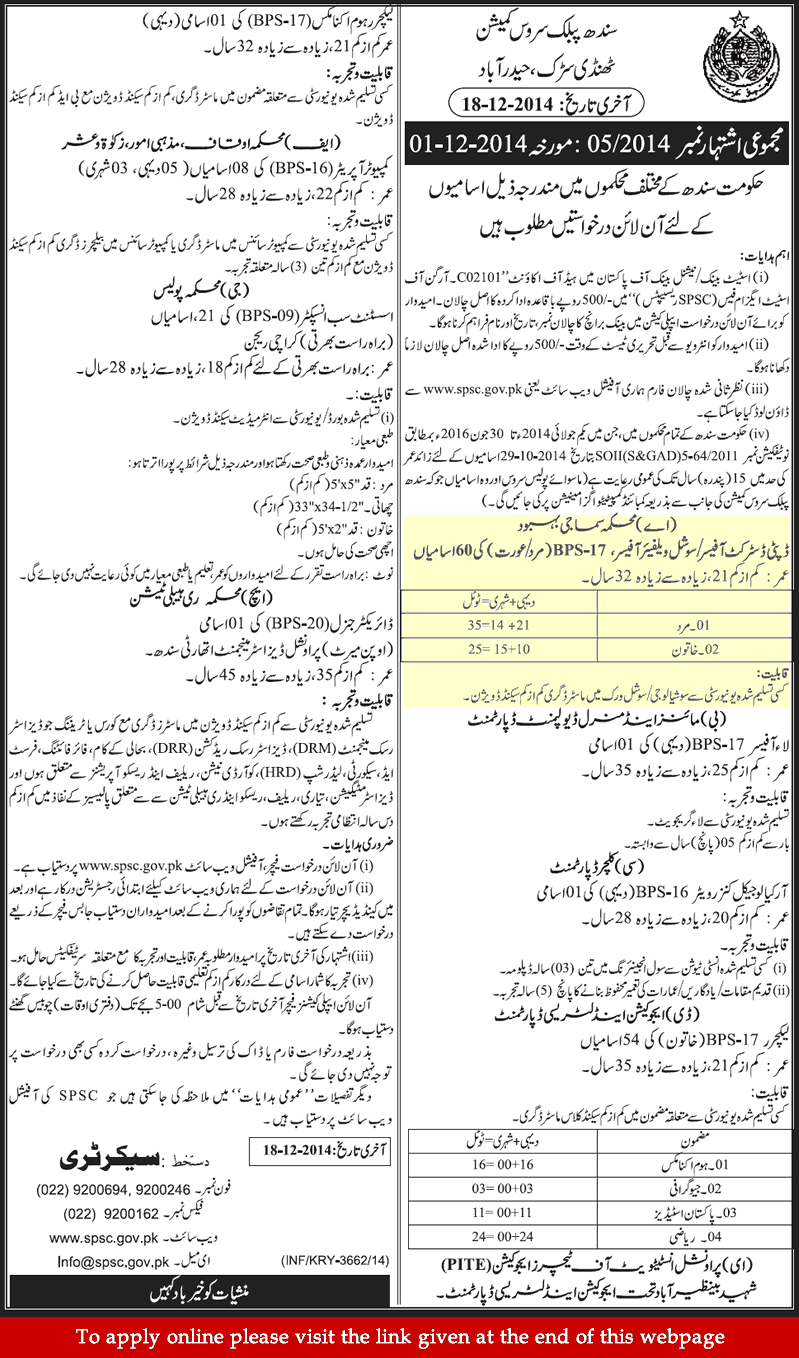 سندھ پبلک سروس کمیشن
ٹھنڈی سڑک، حیدرآباد
آخری تاریخ: 18-12-2014
مجموعی اشتہار نمبر 05/2014 : مورخہ 01-12-2014
حکومت سندھ کے مختلف محکموں میں مندرجہ ذیل اسامیوں
کے لئے آن لائن درخواستیں مطلوب ہیں
اہم ہدایات:
(i) اسٹیٹ بینک/نیشنل بینک آف پاکستان میں ہیڈ آف اکاؤنٹ "C02101۔آرگن آف
اسٹیٹ ایگزام فیس (SPSC رسیپٹس)" میں -/500 روپے باقاعدہ ادا کردہ کا اصل چالان۔ امیدوار
کو برائے آن لائن درخواست ایپلی کیشن میں بینک برانچ کا چالان نمبر، تاریخ اور نام فراہم کرنا ہوگا۔
(ii) امیدوار کو انٹرویو سے قبل تحریری ٹیسٹ کے وقت -/500 روپے کا ادا شدہ اصل چالان لازماً
دکھانا ہوگا۔
(iii) نظر ثانی شدہ چالان فارم ہماری آفیشل ویب سائٹ یعنی www.spsc.gov.pk سے
ڈاؤن لوڈ کیا جاسکتا ہے۔
(iv) حکومت سندھ کے تمام محکموں میں، جن میں یکم جولائی 2014ء تا 30 جون 2016ء بمطابق
نوٹیفکیشن نمبر SOII(S&GAD)5-64/2011 بتاریخ 29-10-2014 اسامیوں کے لئے زائد عمر
کی حد میں 15 (پندرہ) سال تک کی عمومی رعایت ہے (ماسوائے پولیس سروس اور وہ اسامیاں جو کہ سندھ
پبلک سروس کمیشن کی جانب سے بذریعہ کمبائنڈ کمپیٹیٹو اگزامینیشن پر کی جائیں گی۔)
(اے) محکمہ سماجی بہبود
ڈپٹی ڈسٹرکٹ آفیسر/سوشل ویلفیئر آفیسر، BPS-17 (مرد/عورت) کی 60 اسامیاں
عمر : کم از کم 21، زیادہ سے زیادہ 32 سال۔
دیہی+شہری=ٹوٹل
01۔مرد 21+ 14=35
02۔خاتون 10+15 =25
قابلیت:
کسی تسلیم شدہ یونیورسٹی سے سوشیالوجی/سوشل ورک میں ماسٹر ڈگری کم از کم سیکنڈ ڈویژن۔
(بی) مائنز اینڈ منرل ڈیولپمنٹ ڈپارٹمنٹ
لاء آفیسر BPS-17 (دیہی) کی 01 اسامی
عمر : کم از کم 25، زیادہ سے زیادہ 35 سال۔
قابلیت و تجربہ:
تسلیم شدہ یونیورسٹی سے لاء گریجویٹ۔
بار سے کم از کم 05 (پانچ) سال سے وابستہ۔
(سی) کلچر ڈپارٹمنٹ
آرکیالوجیکل کنزرویٹر BPS-16 (دیہی) کی 01 اسامی
عمر : کم از کم 20، زیادہ سے زیادہ 28 سال۔
قابلیت و تجربہ۔
(i) کسی تسلیم شدہ انسٹی ٹیوشن سے سول انجینئرنگ میں تین (03) سالہ ڈپلومہ۔
(ii) قدیم مقامات/یادگاریں/عمارات کی تعمیر محفوظ بنانے کا پانچ (5) سالہ تجربہ۔
(ڈی) ایجوکیشن اینڈ لٹریسی ڈپارٹمنٹ
لیکچرر BPS-17 (خاتون) کی 54 اسامیاں
عمر : کم از کم 21، زیادہ سے زیادہ 35 سال۔
قابلیت:
کسی تسلیم شدہ یونیورسٹی سے متعلقہ مضمون میں کم از کم سیکنڈ کلاس ماسٹر ڈگری۔
مضمون دیہی+شہری=ٹوٹل
01۔ہوم اکنامکس 16+00 =16
02۔جیوگرافی 03+00 =03
03۔پاکستان اسٹیڈیز 11+00 =11
04۔ریاضی 24+00 =24
(ای) پراونشل انسٹیٹیوٹ آف ٹیچرز ایجوکیشن (PITE)
شہید بینظیر آباد تحت ایجوکیشن اینڈ لٹریسی ڈپارٹمنٹ۔
لیکچرر ہوم اکنامکس (BPS-17) کی 01 اسامی (دیہی)
عمر کم از کم 21، زیادہ سے زیادہ 32 سال۔
قابلیت و تجربہ:
کسی تسلیم شدہ یونیورسٹی سے متعلقہ مضمون میں ماسٹر ڈگری، کم از کم سیکنڈ ڈویژن مع بی ایڈ کم از کم سیکنڈ
ڈویژن۔
(ایف) محکمہ اوقاف، مذہبی امور، زکوٰۃ و عشر
کمپیوٹر آپریٹر (BPS-16) کی 08 اسامیاں (05 دیہی، 03 شہری)
عمر : کم از کم 22، زیادہ سے زیادہ 28 سال۔
قابلیت و تجربہ:
کسی تسلیم شدہ یونیورسٹی سے کمپیوٹر سائنس میں ماسٹر ڈگری یا کمپیوٹر سائنس میں بیچلرز ڈگری کم از کم سیکنڈ
ڈویژن مع کم از کم تین (3) سالہ متعلقہ تجربہ۔
(جی) محکمہ پولیس
اسسٹنٹ سب انسپکٹر (BPS-09) کی 21، اسامیاں
(براہ راست بھرتی) کراچی ریجن
عمر : براہ راست بھرتی کے لئے کم از کم 18، زیادہ سے زیادہ 28 سال۔
قابلیت:۔
(i) تسلیم شدہ بورڈ/یونیورسٹی سے انٹرمیڈیٹ سیکنڈ ڈویژن۔
طبعی معیار:
امیدوار عمدہ ذہنی و طبعی صحت رکھتا ہو اور مندرجہ ذیل شرائط پر پورا اترتا ہو:
مرد : قد "5'x5 (کم از کم)
چھاتی۔ "33"x34-1/2 (کم از کم)
خاتون : قد "5'x2 (کم از کم)
اچھی صحت کی حامل ہوں۔
نوٹ : براہ راست تقرر کے لئے امیدواروں کو عمر، تعلیم یا طبعی معیار میں کوئی رعایت نہیں دی جائے گی۔
(ایچ) محکمہ ری ہیبلی ٹیشن
ڈائریکٹر جنرل (BPS-20) کی 01 اسامی
(اوپن میرٹ) پراونشل ڈیزاسٹر مینجمنٹ اتھارٹی سندھ۔
عمر : کم از کم 35، زیادہ سے زیادہ 45 سال۔
قابلیت و تجربہ :
تسلیم شدہ یونیورسٹی سے کم از کم سیکنڈ ڈویژن میں ماسٹرز ڈگری مع کورس یا ٹریننگ جو ڈیزاسٹر
رسک مینجمنٹ (DRM)، ڈیزاسٹر رسک ریڈکشن (DRR)، بحالی کے کام، فائر فائٹنگ، فرسٹ
ایڈ، سیکورٹی، لیڈرشپ (HRD)، کوآرڈی نیشن، ریلیف اینڈ ریسکو آپریشنز سے متعلق ہوں اور
ڈیزاسٹر مٹیگیشن، تیاری، ریلیف، ریسکو اینڈ ری ہیبلی ٹیشن سے سے متعلق پالیسیز کے نفاذ میں کم از کم
دس سالہ انتظامی تجربہ رکھتے ہوں۔
ضروری ہدایات۔
(i) آن لائن درخواست فیچر، آفیشل ویب سائٹ www.spsc.gov.pk پر دستیاب ہے۔
(ii) آن لائن درخواست کے لئے ہماری ویب سائٹ کیلئے ابتدائی رجسٹریشن درکار ہے اور بعد
میں کینڈیڈیچر تیار ہوگا۔ تمام تقاضوں کو پورا کرنے کے بعد امیدواران دستیاب جابس فیچر کے ذریعے
درخواست دے سکتے ہیں۔
(iii) اشتہار کی آخری تاریخ پر امیدوار مطلوبہ عمر، قابلیت اور تجربہ کا مع متعلقہ سرٹیفکیٹس حامل ہو۔
(iv) تجربہ کا شمار اسامی کے لئے درکار کم از کم تعلیمی قابلیت حاصل کرنے کی تاریخ سے کیا جائے گا۔
آن لائن ایپلی کیشنز فیچر آخری تاریخ سے قبل شام 5-00 بجے تک (دفتری اوقات) چوبیس گھنٹے
دستیاب ہوگا۔
بذریعہ درخواست فارم یا ڈاک کی ترسیل وغیرہ، درخواست کردہ کسی بھی درخواست پر
توجہ نہیں دی جائے گی۔
دیگر تفصیلات "عمومی ہدایات" میں ملاحظہ کی جاسکتی ہیں جو SPSC کی آفیشل
ویب سائٹ پر دستیاب ہیں۔
آخری تاریخ: 18-12-2014
دستخط : سیکرٹری
فون نمبر۔ 9200246 ,9200694 (022)
فیکس نمبر۔ 9200162 (022)
ویب سائٹ۔ www.spsc.gov.pk
ای میل۔ Info@spsc.gov.pk
(INF/KRY-3662/14)
منشیات کو خیر باد کہیں
To apply online please visit the link given at the end of this webpage